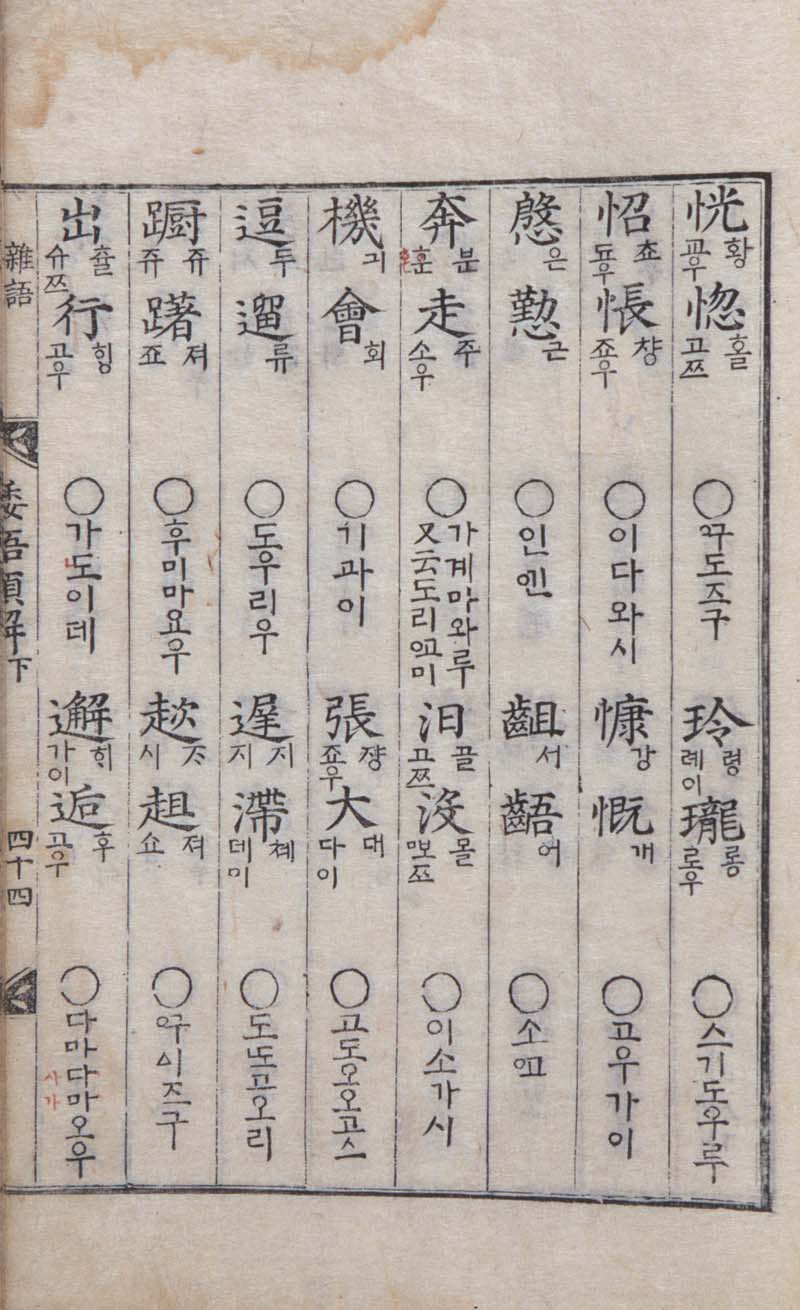 恍 황 교우 惚 홀 고쯔
玲 령 례이 瓏 롱 로우 ○스기도우루
怊 쵸 됴우 悵 챵 죠우 ○이다와시
慷 강 慨 개 ○고우가이
慇 은 懃 근
齟 서 齬 어
奔 분 훈 走 주 소우 ○가계마와루
又云
汨 골 고쯔 沒 몰 ○이소가시
機 긔 會 회 ○기과이
張 쟝 죠우 大 대 다이 ○고도오오고스
逗 두 遛 류 ○도우리우
遲 지 지 滯 쳬 데이 ○도도고오리
躕 쥬 쥬 躇 져 죠 ○후미마요우
趑 ᄌᆞ 시 趄 져 쇼
出 츌 슈쯔 行 ᄒᆡᆼ 고우 ○가도이데
邂 ᄒᆡ 가이 逅 후 고우 ○다마다마오우
사가
雜語
倭語類解下
四十四